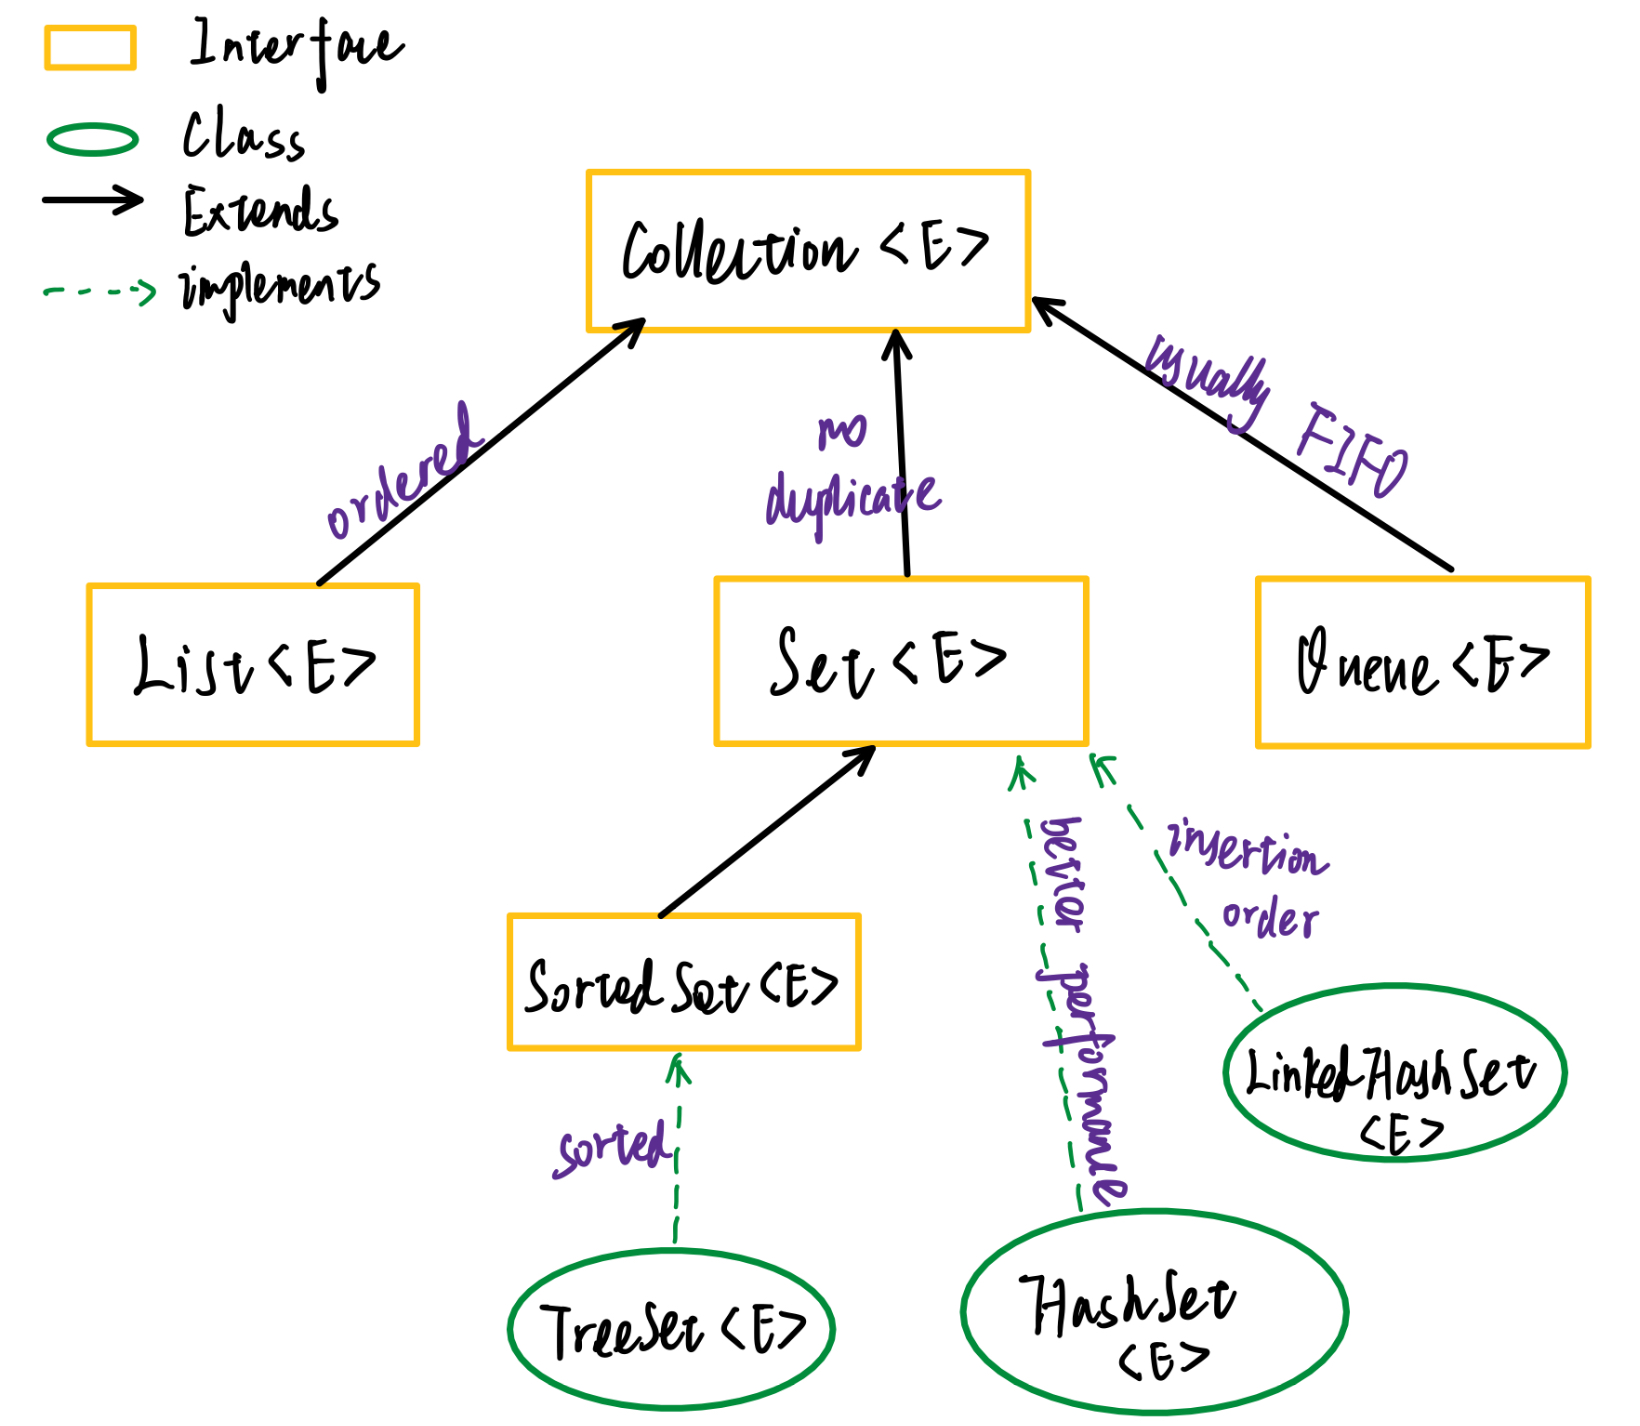 Interface
Class
Extends
implements
Collection <E>
ordered
no
duplicate
usually FIFO
List <E>
Set <E>
Queue <E>
better performance
insertion
order
SortedSet <E>
sorted
LinkedHashSet
<E>
TreeSet <E>
HashSet
<E>